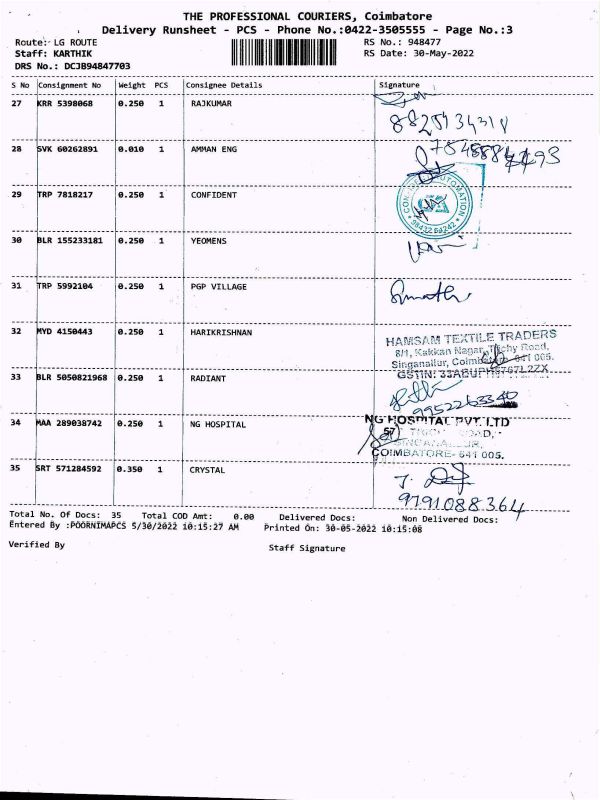 THE PROFESSIONAL COURIERS, Coimbatore
Delivery Runsheet - PCS - Phone No.:0422-3505555 - Page No.:3
Route: LG ROUTE RS No.: 948477
Staff: KARTHIK RS Date: 30-May-2022
DRS No.: DCJB94847703
S No Consignment No Weight PCS Consignee Details Signature
27 KRR 5398068 0.250 1 RAJKUMAR
28 SVK 60262891 0.010 1 AMMAN ENG
29 TRP 7818217 0.250 1 CONFIDENT
30 BLR 155233181 0.250 1 YEOMENS
31 TRP 5992104 0.250 1 PGP VILLAGE
32 MYD 4150443 0.250 1 HARIKRISHNAN
HAMSAM TEXTILE TRADERS
8/1, Kakkan Nagar, Trichy Road,
Singanallur, Coimbatore- 641 005.
33 BLR 5050821968 0.250 1 RADIANT
9952263340
34 MAA 289038742 0.250 1 NG HOSPITAL
NG HOSPITAL PVT. LTD
COIMBATORE- 641 005.
35 SRT 571284592 0.350 1 CRYSTAL
9791088364
Total No. Of Docs: 35 Total COD Amt: 0.00 Delivered Docs: Non Delivered Docs:
Entered By :POORNIMAPCS 5/30/2022 10:15:27 AM Printed On: 30-05-2022 10:15:08
Verified By Staff Signature